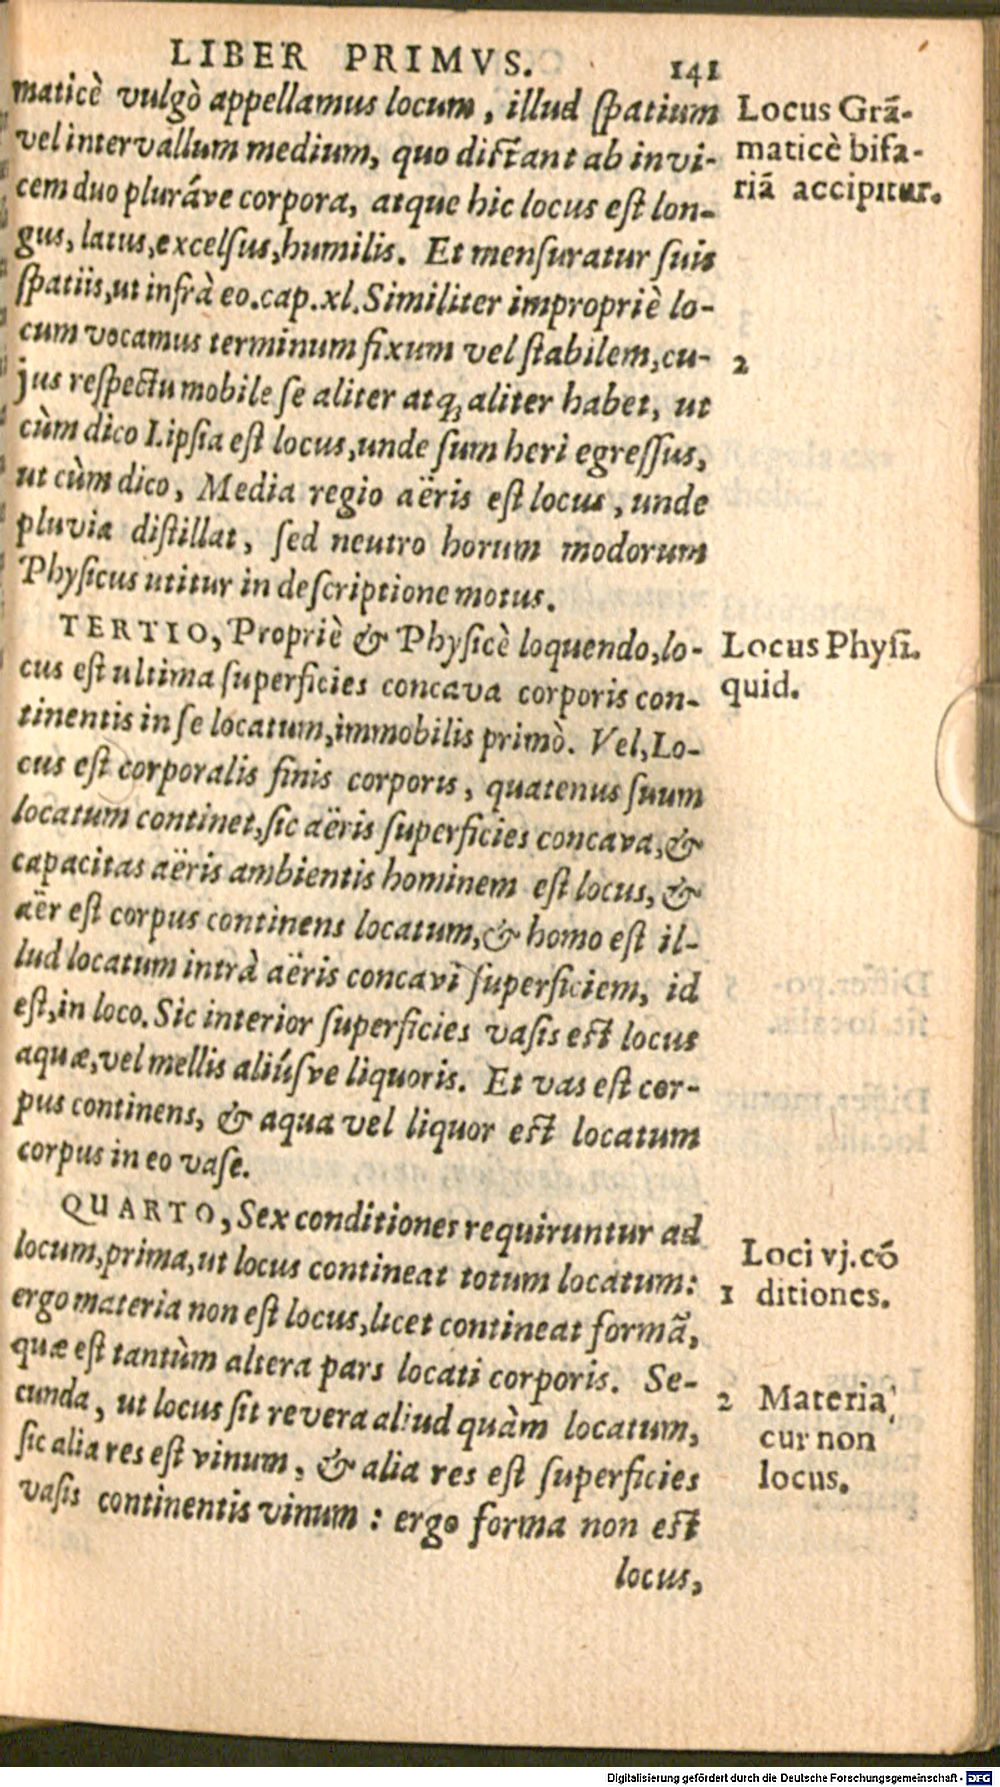 LIBER PRIMVS. 141
maticè vulgò appellamus locum, illud ſpatium
vel intervallum medium, quo diſtant ab invi-
cem duo pluráve corpora, atque hic locus eſt lon-
gus, latus, excelſus, humilis. Et menſuratur ſuis
ſpatiis, ut infrà eo. cap. xl. Similiter impropriè lo-
cum vocamus terminum fixum vel ſtabilem, cu-
jus reſpectu mobile ſe aliter atq; aliter habet, ut
cùm dico Lipſia eſt locus, unde ſum heri egreſſus,
ut cùm dico, Media regio aëris eſt locus, unde
pluvia diſtillat, ſed neutro horum modorum
Phyſicus utitur in deſcriptione motus.
TERTIO, Propriè & Phyſicè loquendo, lo-
cus eſt ultima ſuperficies concava corporis con-
tinentis in ſe locatum, immobilis primò. Vel, Lo-
cus eſt corporalis finis corporis, quatenus ſuum
locatum continet, ſic aëris ſuperficies concava, &
capacitas aëris ambientis hominem eſt locus, &
aër eſt corpus continens locatum, & homo eſt il-
lud locatum intrà aëris concavi ſuperficiem, id
eſt, in loco. Sic interior ſuperficies vaſis eſt locus
aquæ, vel mellis aliúſve liquoris. Et vas eſt cor-
pus continens, & aqua vel liquor eſt locatum
corpus in eo vaſe.
QUARTO, Sex conditiones requiruntur ad
locum, prima, ut locus contineat totum locatum:
ergo materia non eſt locus, licet contineat formã,
quæ eſt tantùm altera pars locati corporis. Se-
cunda, ut locus ſit revera aliud quàm locatum,
ſic alia res eſt vinum, & alia res eſt ſuperficies
vaſis continentis vinum : ergo forma non eſt
locus,
Locus Grã-
maticè bifa-
riã accipitur.
2
Locus Phyſi.
quid.
Loci vj. cõ
1 ditiones.
2 Materia
cur non
locus.
Digitalisierung gefördert durch die Deutsche Forschungsgemeinschaft - DFG